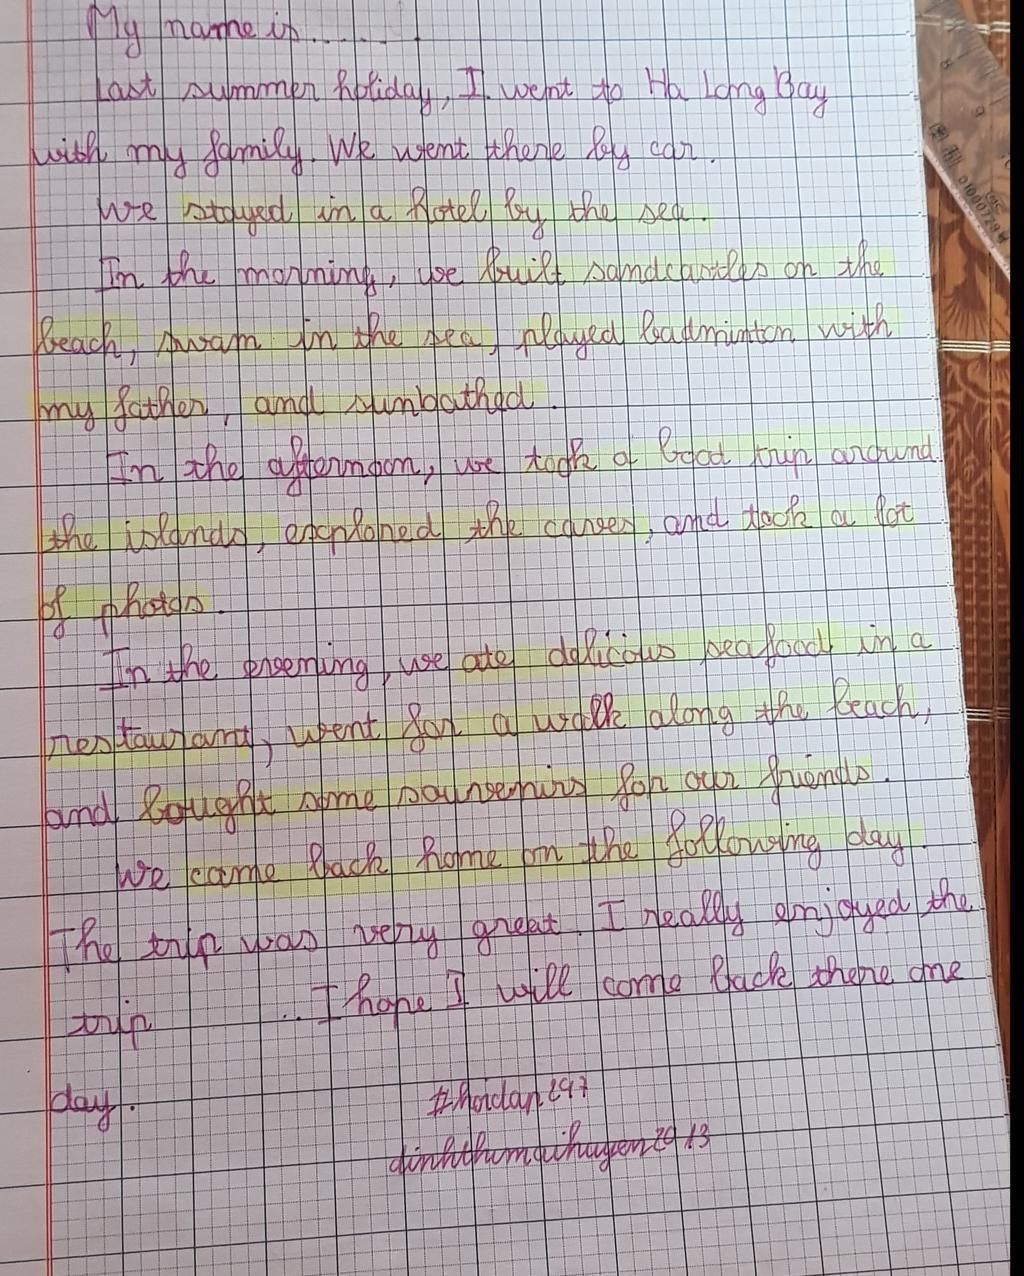 My name is........
Last summer holiday, I went to Ha Long Bay
with my family. We went there by car.
We stayed in a hotel by the sea.
In the morning, we built sandcastles on the
beach, swam in the sea, played badminton with
my father, and sunbathed.
In the afternoon, we took a boat trip around
the islands, explored the caves, and took a lot
of photos.
In the evening, we ate delicious seafood in a
restaurant, went for a walk along the beach,
and bought some souvenirs for our friends.
We came back home on the following day.
The trip was very great. I really enjoyed the
trip ... I hope I will come back there one
day. #hoidan247